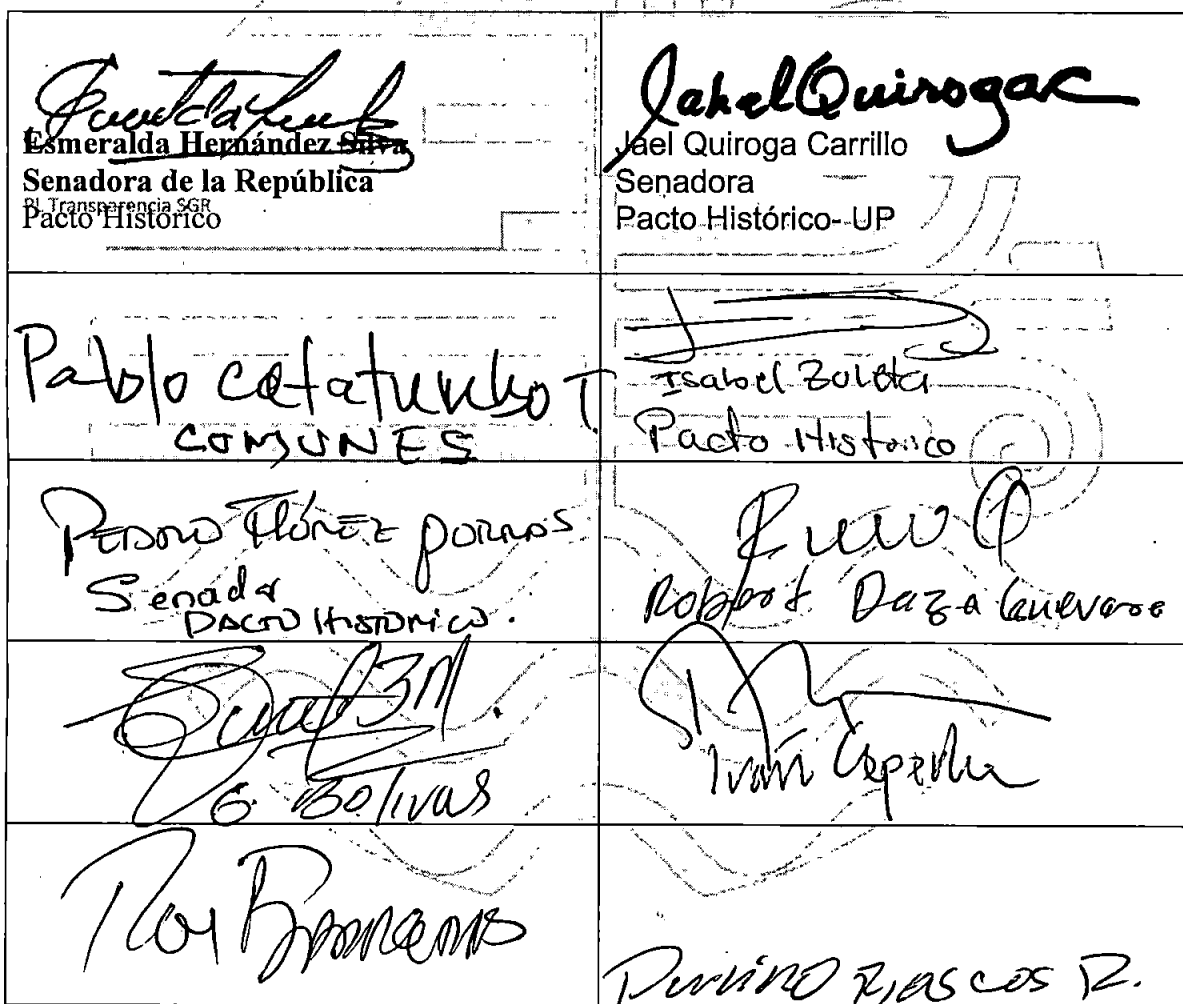 Esmeralda Hernández Silva
Senadora de la República
PL Transparencia SGR
Pacto Histórico
Jahel Quiroga C
Jael Quiroga Carrillo
Senadora
Pacto Histórico- UP
Pablo Catatumbo T.
COMUNES
Isabel Zuleta
Pacto Historico
PEDRO FLÓREZ PORRAS
Senador
PACTO HISTORICO.
Robert Daza Guevara
G. Bolivar
Iván Cepeda
Roy Barreras